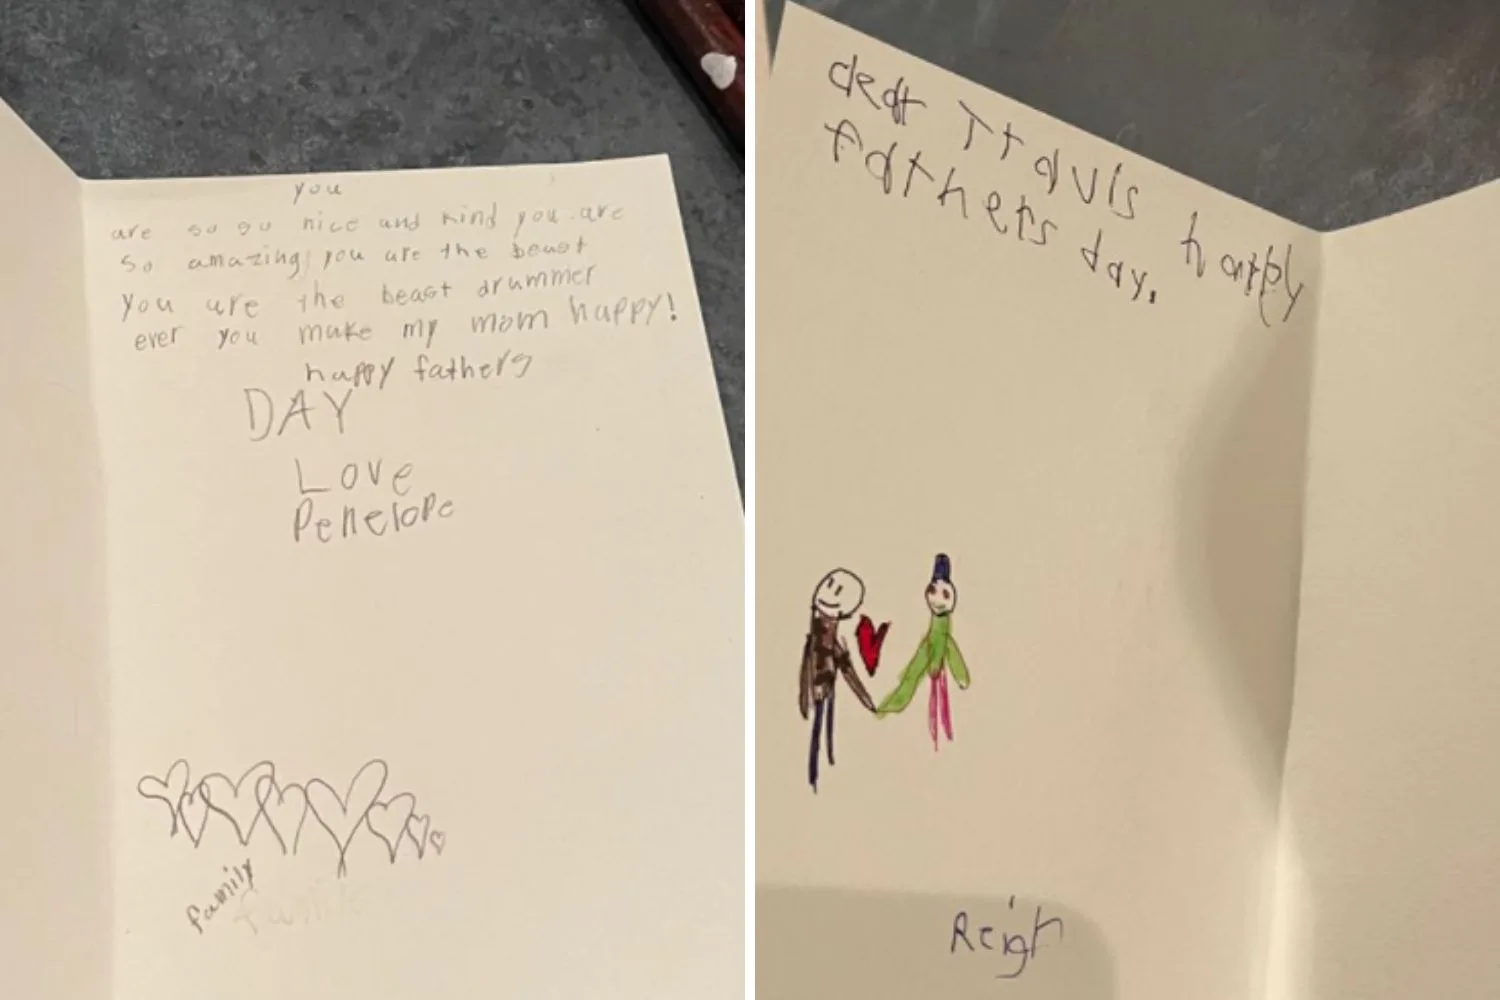 you
are so so nice and kind you are
so amazing you are the beast
you are the beast drummer
ever you make my mom happy!
happy fathers
DAY
Love
Penelope
family
dear Travis happy
fathers day.
Reign